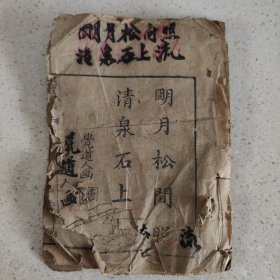 明月松间照
清泉石上流
明月松間照
清泉石上
流
覺道人画
覓道人画